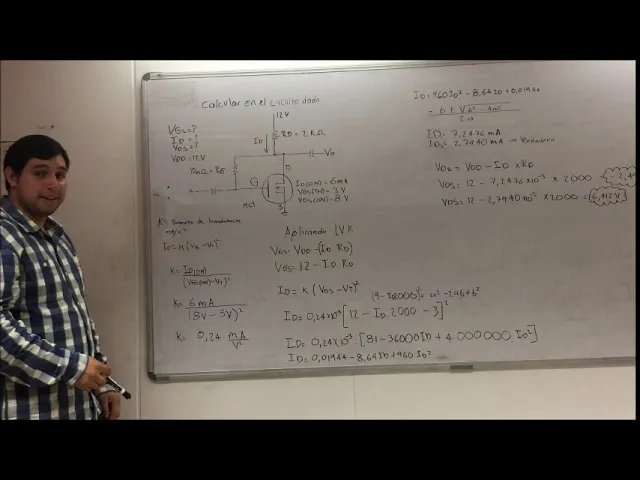 Calcular en el circuito dado
VGS=?
ID=?
VDS=?
VDD=12V
12V
ID
RD=2KΩ
Vo
10MΩ=RG
G
D
S
ID(ON)=6mA
VGS(TH)=3V
VGS(ON)=8V
K= Parametro de transductancia
mA/V²
ID=K(VGS-VT)²
K= ID(ON)
(VGS(ON)-VT)²
K= 6mA
(8V-3V)²
K= 0,24 mA
V²
Aplicando LVK
VGS=VDD-(ID RD)
VGS=12-ID RD
ID=K(VGS-VT)²
(9-ID2000)²=a²-2ab+b²
ID=0,24x10⁻³[12-ID.2000-3]²
ID=0,24x10⁻³[81-36000ID+4000000ID²]
ID=0,01944-8,64ID+960ID²
ID=960ID²-8,64ID+0,01944
-b±√b²-4ac
2a
ID1=7,2476mA
ID2=2,7940mA → Verdadero
VDS=VDD-ID×RD
VDS=12-7,2476×10⁻³×2000=
VDS=12-2,7940×10⁻³×2000=6,412V